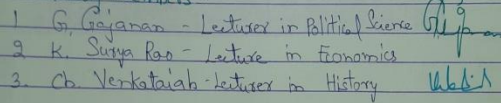 1 G. Gajanan - Lecturer in Political Science
2 K. Surya Rao - Lecture in Economics
3. Ch. Venkataiah - Lecturer in History